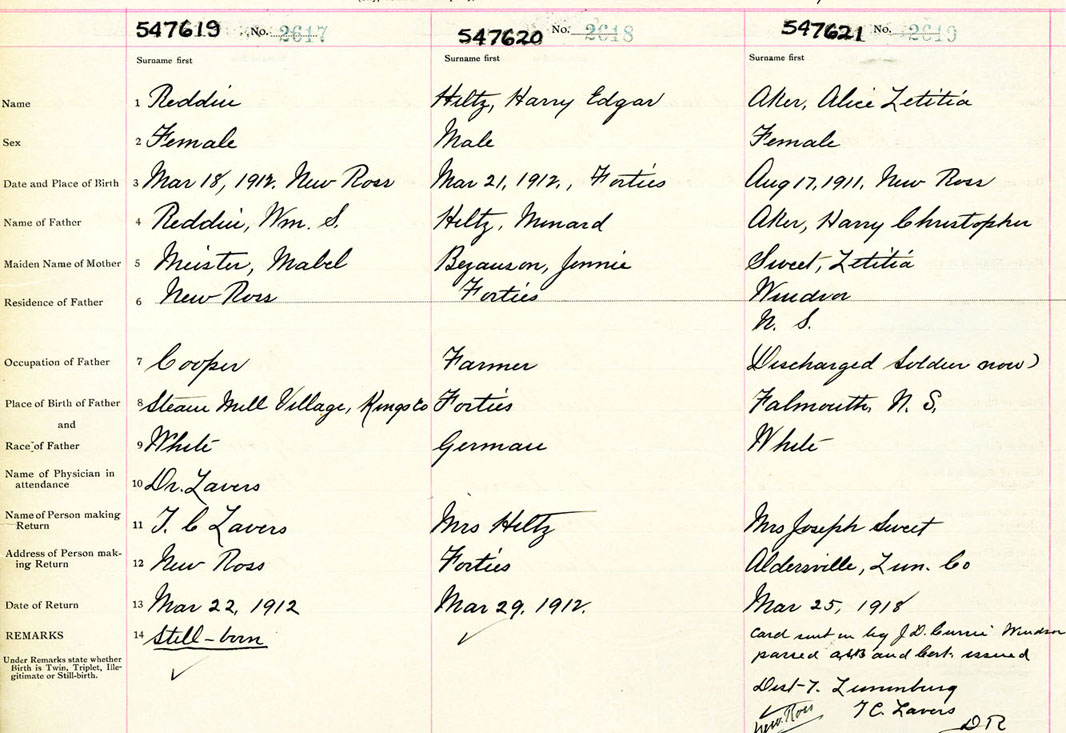 547619 No. 2617 547620 No. 2618 547621 No. 2619
Surname first Surname first Surname first
Name 1 Reddin Hiltz, Harry Edgar Aker, Alice Letitia
Sex 2 Female Male Female
Date and Place of Birth 3 Mar 18, 1912. New Ross Mar 21, 1912., Forties Aug 17, 1911, New Ross
Name of Father 4 Reddin, Wm. S. Hiltz, Menard Aker, Harry Christopher
Maiden Name of Mother 5 Meister, Mabel Bezanson, Jennie Sweet, Letitia
Residence of Father 6 New Ross Forties Windsor
N. S.
Occupation of Father 7 Cooper Farmer Discharged Soldier now)
Place of Birth of Father 8 Steam Mill Village, Kings Co Forties Falmouth, N. S.
and
Race of Father 9 White German White
Name of Physician in
attendance 10 Dr. Lavers
Name of Person making
Return 11 T. C Lavers Mrs Hiltz Mrs Joseph Sweet
Address of Person mak-
ing Return 12 New Ross Forties Aldersville, Lun. Co
Date of Return 13 Mar 22, 1912 Mar 29, 1912. Mar 25, 1918
REMARKS 14 Still-born Card sent in by J. D. Currie Windsor
Under Remarks state whether
Birth is Twin, Triplet, Ille-
gitimate or Still-birth.
passed and Cert. issued
Dist-7. Lunenburg
New Ross T C. Lavers
D R